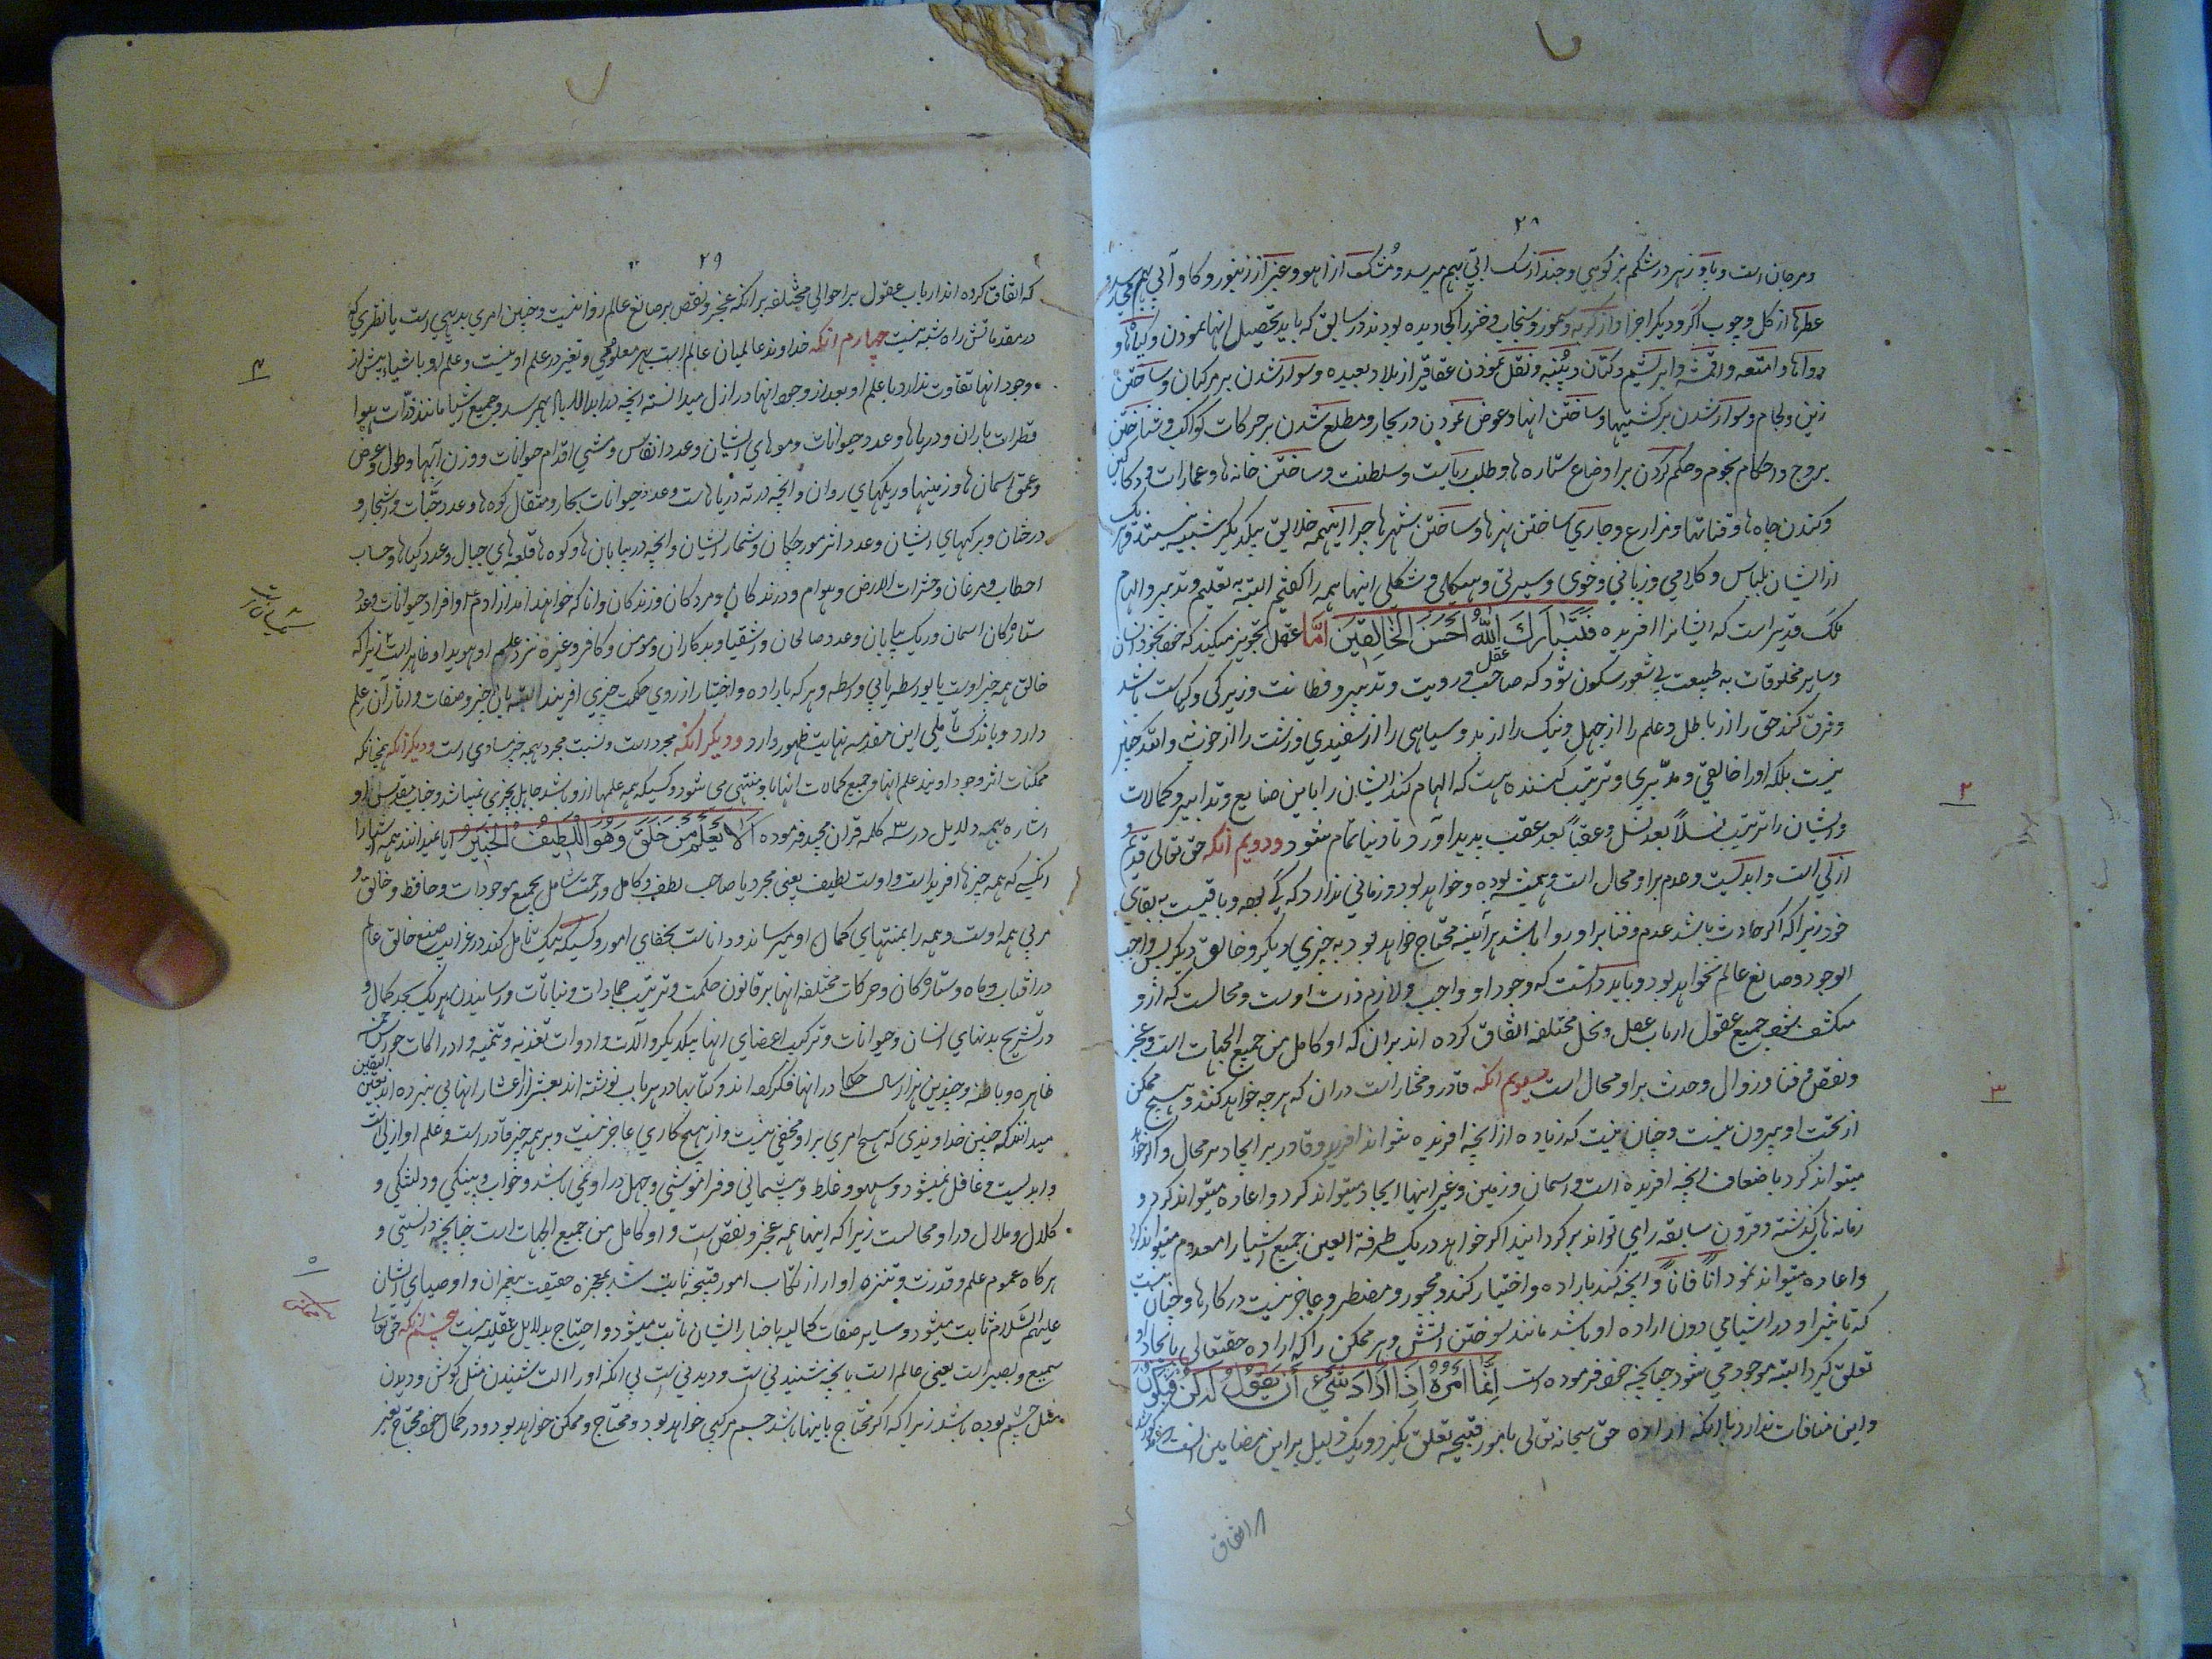 ۲۸
و مرجان است و پاوزهر در شکم بز کوهی و جند از سک ابی بهم میرسد و مشک از اهو و عنبر از زنبور و کاو آبی بهم میرسد و
عطرها از کل و چوب اکر و دیکر اجزا و از کربه و سمور و سنجاب و خز را کجا دیده بودند در سابق که باید تحصیل انها نمودن و کیاه‌ها و
دواها و امتعه و اقمشه و ابریشم و کتان و پنبه و نقل نمودن عقاقیر از بلاد بعیده و سوار شدن بر مرکبان و ساختن
زین و لجام و سوار شدن بر کشتیها و ساختن انها و عوض نمودن در بحار و مطلع شدن بر حرکات کواکب و شناختن
بروج و احکام نجوم و حکم کردن بر اوضاع ستاره ها و طلب ریاست و سلطنت و ساختن خانه ها و عمارات و دکاکین
و کندن چاه ها و قناتها و مزارع و جاری ساختن نهرها و ساختن شهرها چرا اینهمه خلایق بیکدیکر شبیه نیستند و هر یک
از ایشان بلباس و کلامی و زبانی و خوی و سیرتی و هیکلی و شکلی اینها همه را کفتیم البته به تعلیم و تدبیر و الهام
ملک قدیر است که ایشانرا افریده فَتَبَارَكَ اللّٰهُ اَحْسَنُ الْخَالِقِينَ امّا عقل تجویز میکند که خود بخود ان
و سایر مخلوقات به طبیعت بی شعور سکون شود که صاحب عقل و رویت و تدبیر و فطانت و زیرکی و کیاست باشد
و فرق کند حق را از باطل و علم را از جهل و نیک را از بد و سیاهی را از سفیدی و زشت را از خوش و الله چنین
نیست بلکه او را خالقی و مدبّری و تربیت کننده هست که الهام کند ایشان را باین صنایع و تدابیر و کمالات
و ایشان را تربیت نسلاً بعد نسل و عقباً بعد عقب پدید آورد تا دنیا تمام شود و دویم انکه حق تعالی قدیم و
ازلی است و ابدیست و عدم بر او محال است و همیشه بوده و خواهد بود و زمانی ندارد که بکوید و باقیست به بقای
خود زیرا که اکر حادث باشد عدم و فنا بر او روا باشد هر آینه محتاج خواهد بود به چیزی دیکر و خالق دیکر پس واجب
الوجود و صانع عالم نخواهد بود و باید دانست که وجود او واجب و لازم ذات اوست و محالست که از او
منکشف بخود جمیع عقول ارباب عقل و نحل مختلفه اتفاق کرده اند بر ان که او کامل من جمیع الجهات است و عجز
و نقص و فنا و زوال و حدث بر او محال است سیوم انکه قادر و مختار است در ان که هر چه خواهد کند و هیچ ممکن
از تحت او بیرون نیست و چنان نیست که زیاده از انچه افریده نتواند افرید و قادر بر ایجاد هر محال و اکر خواهد
میتواند کرد باضعاف انچه افریده است و اسمان و زمین و غیر اینها ایجاد میتواند کرد و اعاده میتواند کرد و
زمانهای کذشته و قرون سابقه را می تواند برکردانید اکر خواهد در یک طرفة العین جمیع اشیا را معدوم میتواند کرد
و اعاده میتواند نمود اناً فاناً و انچه کند باراده و اختیار کند و مجبور و مضطر و عاجز نیست در کارها و چنان نیست
که تاثیر او در اشیا می دون اراده او باشد مانند سوختن اتش و هر ممکن را که اراده حقتعالی بایجاد او
تعلق کیرد البته موجود می شود چنانچه خود فرموده است اِنَّمَا اَمْرُهُ اِذَا اَرَادَ شَيْئًا اَنْ يَقُولَ لَهُ كُنْ فَيَكُونُ
و این منافات ندارد با انکه اراده حق سبحانه تعالی بامور قبیحه تعلق نکیرد و یک دلیل بر این مضامین انست
۲
۳
۲۹
که اتفاق کرده اند ارباب عقول بر احوالی مختلفه بر انکه عجز و نقص بر صانع عالم روا نیست و چنین امری بدیهی است یا نظری که
در مقدماتش راه شبه نیست چهارم انکه خداوند عالمیان عالم است بهر معلومی و تغیر در علم او نیست و علم او باشیاء پیش از
وجود انها تفاوت ندارد با علم او بعد از وجود انها و در ازل میدانسته انچه در ابدالاباد بهم رسد و جمیع اشیا مانند ذرّات هوا
قطرات باران و دریاها و عدد حیوانات و موهای ایشان و عدد انفاس و مشی اقدام حیوانات و وزن آبها و طول و عرض
و عمق اسمان ها و زمینها و ریکهای روان و انچه در ته دریاهاست و عدد حیوانات بحار و مثقال کوه ها و عدد حبّات و اشجار و
درختان و برکهای ایشان و عدد اثر مورچکان و شمار ایشان و انچه در بیابان ها و کوه ها قله‌های جبال و عدد کیاها و حساب
احطاب و مرغان و حشرات الارض و هوام و درندکان و مردکان و زندکان و انا که خواهند امد از ادم و افراد حیوانات و عدد
ستارکان اسمان و ریک بیابان و عدد صالحان و اشقیا و بدکاران و مومن و کافر و غیره نزد علم او هویدا و ظاهر است زیرا که
خالق همه چیز اوست یا بواسطه یا بی واسطه و هر که باراده و اختیار از روی حکمت چیزی افریند البته بان چیز و صفات و اثار آن علم
دارد و باندک تاملی این مقدمه نهایت ظهور دارد و دیکر انکه مجرد است و نسبت مجرد بهمه چیز مساوی است و دیکر انکه همچنانکه
ممکنات اثر وجود اویند علم انها و جمیع کمالات انها باو منتهی می شود و کسیکه همه علمها از او باشد جاهل بچیزی نمیباشد و جناب مقدس او
اشاره بهمه دلایل در ۳ کلمه قران مجید فرموده اَلَا يَعْلَمُ مَنْ خَلَقَ وَهُوَ اللَّطِيفُ الْخَبِيرُ ایا نمیداند همه اشیا را
انکسی که همه چیزها افریده است و اوست لطیف یعنی مجرد یا صاحب لطف کامل و رحمت شامل بجمیع موجودات و حافظ و خالق و
مربی همه اوست و همه را بمنتهای کمال او میرساند و داناست بخفای امور و کسیکه نیک تأمل کند در غرایب صنع خالق عالم
در افتاب و ماه و ستارکان و حرکات مختلفه انها بر قانون حکمت و تربیت جمادات و نباتات و رسانیدن هر یک بحد کمال و
در تشریح بدنهای انسان و حیوانات و ترکیب اعضای انها بیکدیکر و آلات و ادوات تغذیه و تنمیه و ادراکات حواس خمس
ظاهره و باطنه و چندین هزار سال حکما در انها فکر کرده اند و کتابها در هر باب نوشته اند بعشر از اعشار انها پی نبرده اند بیقین
میدانند که چنین خداوندی که هیچ امری بر او مخفی نیست و از هیچ کاری عاجز نیست و بر همه چیز قادر است و علم او ازلی است
و ابدیست و غافل نمیشود و سهو و غلط و پشیمانی و فراموشی و جهل در او نمی باشد و خواب و پینکی و دلتنکی و
کلال و ملال در او محالست زیرا که اینها همه عجز و نقص است و او کامل من جمیع الجهات است چنانچه دانستی و
هر کاه عموم علم و قدرت و تنزه او از ارتکاب امور قبیحه ثابت شد بمعجزه حقیقت پیغمبران و اوصیای ایشان
علیهم السّلام ثابت میشود و سایر صفات کمالیه باخبار ایشان ثابت میشود و احتیاج بدلایل عقلیه نیست پنجم انکه حق تعالی
سمیع و بصیر است یعنی عالم است بانچه شنیدنی است و دیدنی است بی انکه او را الت شنیدن مثل کوش و دیدن
مثل چشم بوده باشد زیرا که اکر محتاج باینها باشد جسم مرکبی خواهد بود و محتاج و ممکن خواهد بود و در کمال خود محتاج بغیر
۴
۵